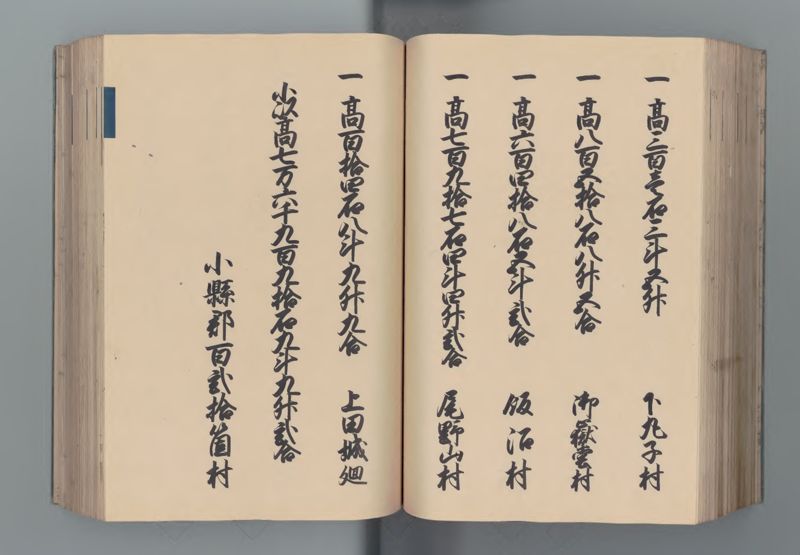 一 高三百壱石三斗五升 下丸子村
一 高八百五拾八石八升五合 御嶽堂村
一 高六百四拾八石五斗弐合 飯沼村
一 高七百九拾七石四斗四升弐合 尾野山村
一 高百拾四石八斗九升九合 上田城廻
小以高七万六千九百九拾石九斗九升弐合
小縣郡百弐拾箇村